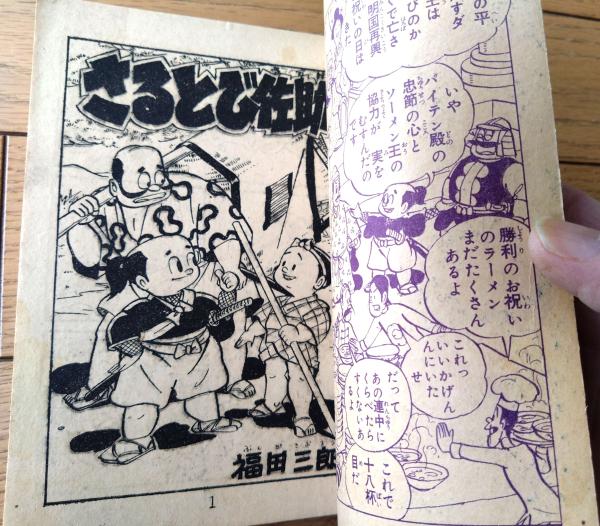 さるとび佐助
福田三郎
1
の平
すダ
王は
びのか
くで亡さ
明国再興
祝いの日は
きた
いや
パイテン殿の
忠節の心と
ソーメン王の
協力が実を
むすんだの
です
勝利のお祝い
のラーメン
まだたくさん
あるよ
これっ
いいかげん
んにいた
せ
だって
あの連中に
くらべたら
すくないあ
るよ
これで
十八杯
目だ